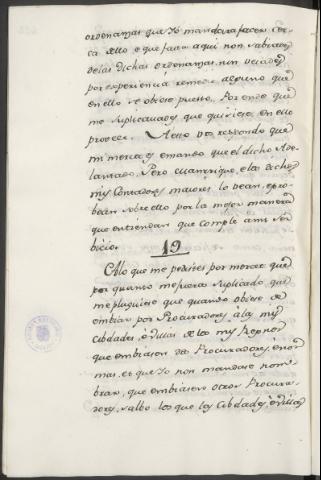 ordenanzas que Yo mandara facer cer-
ca dello e que fasta aqui non sabiades
de las dichas ordenanzas, nin veiades
por esperiencia remedio alguno que
en ello se obiese puesto. Por ende que
me suplicavades que quisiese en ello
proveer. A esto vos respondo que
mi merced es e mando que el dicho Ade-
lantado, Pero Manrrique, e los dichos
mis Contadores maiores lo vean, e pro-
bean sobre ello por la mejor manera
que entendan que cumple a mi ser-
bicio.
19
A lo que me pedistes por merced que
por quanto me fuera suplicado que
me pluguiese que quando obiese de
embiar por Procuradores a las mis
Cibdades, e Villas de los mis Regnos
que embiasen dos Procuradores, e non
mas. et que Yo non mandase nom-
brar, que embiasen otros Procura-
dores, salbo los que las Cibdades, e Villas